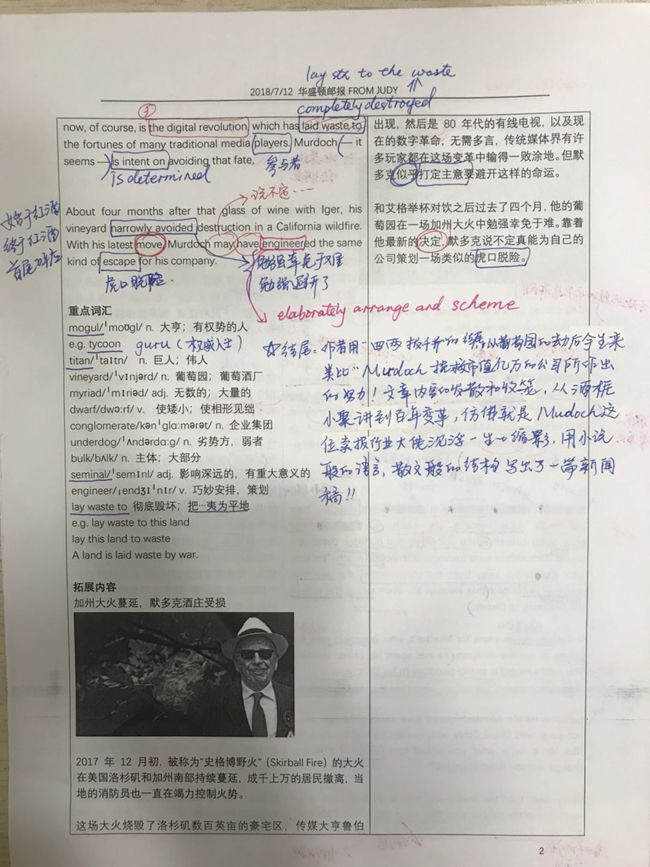 lay sth to the waste
2018/7/12 华盛顿邮报 FROM JUDY
completely destroyed
③
now, of course, is the digital revolution which has laid waste to
the fortunes of many traditional media players. Murdoch — it
seems — is intent on avoiding that fate.
参与者
is determined
说不定…
About four months after that glass of wine with Iger, his
vineyard narrowly avoided destruction in a California wildfire.
With his latest move, Murdoch may have engineered the same
kind of escape for his company.
始于红酒
终于红酒
首尾呼应
虎口脱险.
勉强幸免于难
勉强避开了
elaborately arrange and scheme
重点词汇
mogul/ˈmoʊɡl/ n. 大亨；有权势的人
e.g. tycoon guru (权威人士)
titan/ˈtaɪtn/ n. 巨人；伟人
vineyard/ˈvɪnjərd/ n. 葡萄园；葡萄酒厂
myriad/ˈmɪriəd/ adj. 无数的；大量的
dwarf/dwɔːrf/ v. 使矮小；使相形见绌
conglomerate/kənˈɡlɑːmərət/ n. 企业集团
underdog/ˈʌndərdɑːɡ/ n. 劣势方，弱者
bulk/bʌlk/ n. 主体；大部分
seminal/ˈsemɪnl/ adj. 影响深远的，有重大意义的
engineer/ˌendʒɪˈnɪr/ v. 巧妙安排，策划
lay waste to 彻底毁坏；把…夷为平地
e.g. lay waste to this land
lay this land to waste
A land is laid waste by war.
拓展内容
加州大火蔓延，默多克酒庄受损
2017 年 12 月初，被称为“史格博野火”（Skirball Fire）的大火
在美国洛杉矶和加州南部持续蔓延，成千上万的居民撤离，当
地的消防员也一直在竭力控制火势。
这场大火烧毁了洛杉矶数百英亩的豪宅区，传媒大亨鲁伯
出现，然后是 80 年代的有线电视，以及现
在的数字革命，无需多言，传统媒体界有许
多玩家都在这场变革中输得一败涂地。但默
多克似乎打定主意要避开这样的命运。
和艾格举杯对饮之后过去了四个月，他的葡
萄园在一场加州大火中勉强幸免于难。靠着
他最新的决定，默多克说不定真能为自己的
公司策划一场类似的虎口脱险。
结尾：作者用一四两拨千斤的 以葡萄园的劫后余生来
类比 Murdoch 市值亿万的公司所作出
的努力！文章内容的发散和收笼，从酒桩
小聚讲到百年变革，仿佛就是 Mudoch 这
位 行业大佬沉浮一生的缩影，用小说
般的语言，散文般的结构写出了一篇新闻
稿!!
2